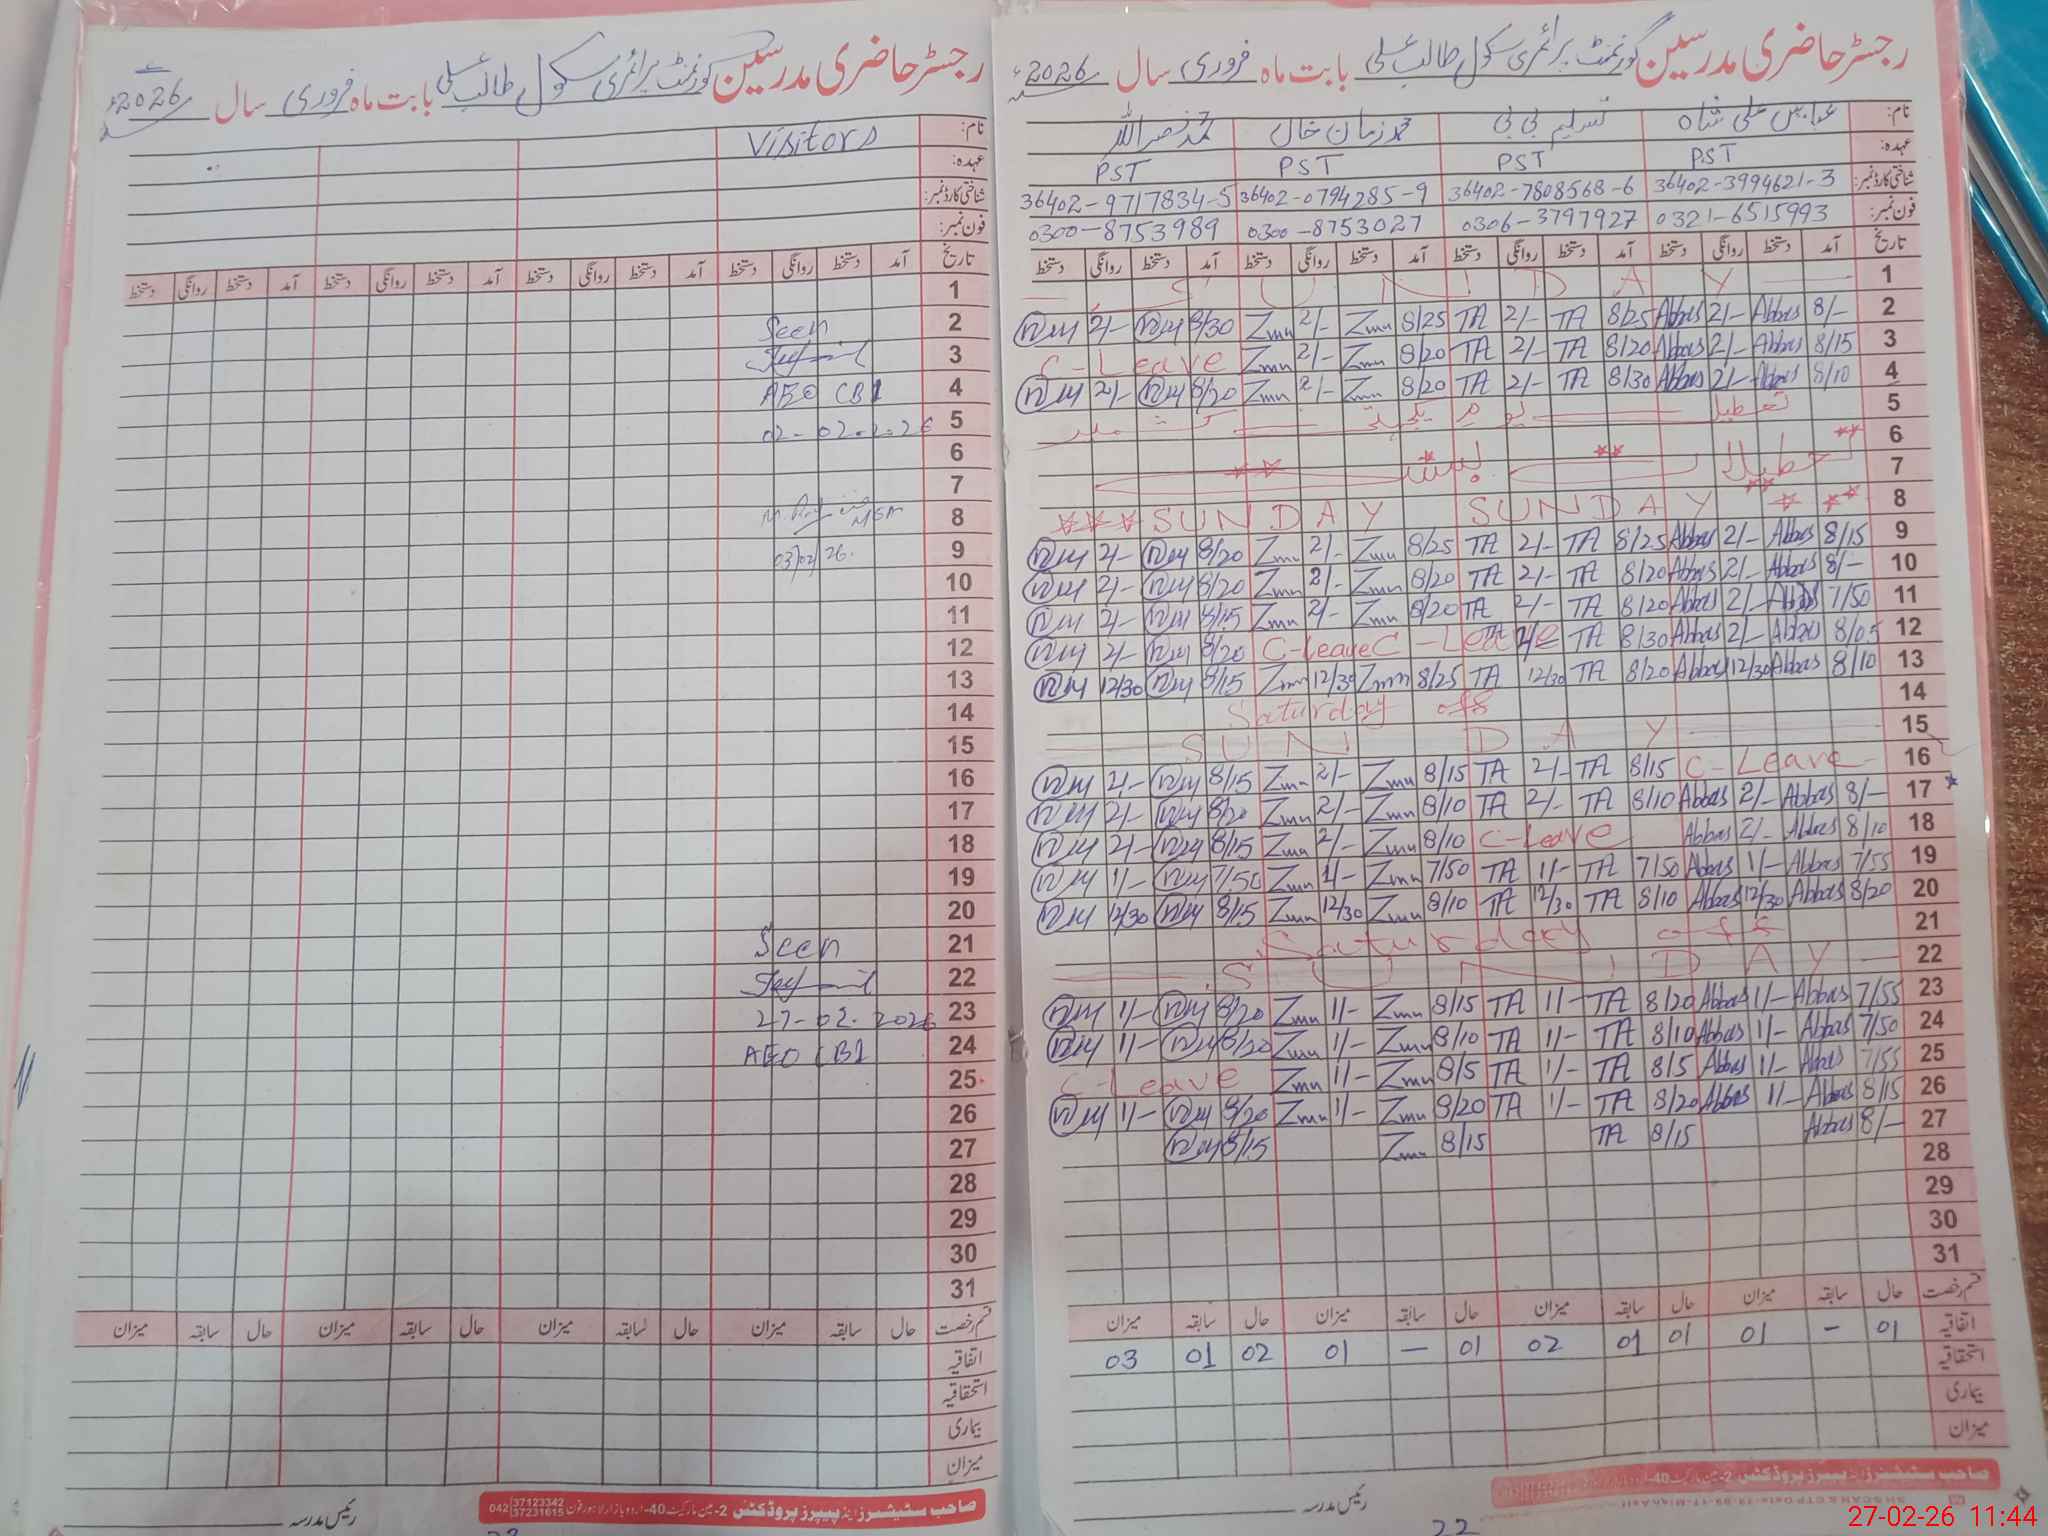 رجسٹر حاضری مدرسین گورنمنٹ پرائمری سکول طالب علی بابت ماہ فروری سال 2026ء
نام: عباس علی شاہ تسلیم بی بی محمد زمان خان محمد نصراللہ
عہدہ: PST PST PST PST
شناختی کارڈ نمبر: 36402-3994621-3 36402-7808568-6 36402-0794285-9 36402-9717834-5
فون نمبر: 0321-6515993 0306-3797927 0300-8753027 0300-8753989
تاریخ آمد دستخط روانگی دستخط آمد دستخط روانگی دستخط آمد دستخط روانگی دستخط آمد دستخط روانگی دستخط
1 SUNDAY
2 8/- Abbas 2/- Abbas 8/25 TA 2/- TA 8/25 Zmn 2/- Zmn 8/30 2/-
3 8/15 Abbas 2/- Abbas 8/20 TA 2/- TA 8/20 Zmn 2/- Zmn C-Leave
4 8/10 Abbas 2/- Abbas 8/30 TA 2/- TA 8/20 Zmn 2/- Zmn 8/20 2/-
5 تعطیل یوم یکجہتی کشمیر
6
7
8 SUNDAY SUNDAY
9 8/15 Abbas 2/- Abbas 8/25 TA 2/- TA 8/25 Zmn 2/- Zmn 8/20 2/-
10 8/- Abbas 2/- Abbas 8/20 TA 2/- TA 8/20 Zmn 2/- Zmn 8/20 2/-
11 7/50 Abbas 2/- Abbas 8/20 TA 2/- TA 8/20 Zmn 2/- Zmn 8/15 2/-
12 8/05 Abbas 2/- Abbas 8/30 TA 2/- TA C-Leave C-Leave 8/20 2/-
13 8/10 Abbas 12/30 Abbas 8/20 TA 12/30 TA 8/25 Zmn 12/30 Zmn 8/15 12/30
14 Saturday off
15 SUNDAY
16 C-Leave 8/15 TA 2/- TA 8/15 Zmn 2/- Zmn 8/15 2/-
17 8/- Abbas 2/- Abbas 8/10 TA 2/- TA 8/10 Zmn 2/- Zmn 8/20 2/-
18 8/10 Abbas 2/- Abbas C-Leave 8/10 Zmn 2/- Zmn 8/15 2/-
19 7/55 Abbas 1/- Abbas 7/50 TA 1/- TA 7/50 Zmn 1/- Zmn 7/50 1/-
20 8/20 Abbas 12/30 Abbas 8/10 TA 12/30 TA 8/10 Zmn 12/30 Zmn 8/15 12/30
21 Saturday off
22 SUNDAY
23 7/55 Abbas 1/- Abbas 8/20 TA 1/- TA 8/15 Zmn 1/- Zmn 8/20 1/-
24 7/50 Abbas 1/- Abbas 8/10 TA 1/- TA 8/10 Zmn 1/- Zmn 8/20 1/-
25 7/55 Abbas 1/- Abbas 8/5 TA 1/- TA 8/5 Zmn 1/- Zmn C-Leave
26 8/15 Abbas 1/- Abbas 8/20 TA 1/- TA 8/20 Zmn 1/- Zmn 8/20 1/-
27 8/- Abbas 8/15 TA 8/15 Zmn 8/15
28
29
30
31
قسم رخصت حال سابقہ میزان حال سابقہ میزان حال سابقہ میزان حال سابقہ میزان
اتفاقیہ 01 - 01 01 01 02 01 - 01 02 01 03
استحقاقیہ
بیماری
میزان
صاحب سٹیشنرز اینڈ پیپرز پروڈکٹس
رئیس مدرسہ
22
رجسٹر حاضری مدرسین گورنمنٹ پرائمری سکول طالب علی بابت ماہ فروری سال 2026ء
نام: Visitors
عہدہ:
شناختی کارڈ نمبر:
فون نمبر:
تاریخ آمد دستخط روانگی دستخط آمد دستخط روانگی دستخط آمد دستخط روانگی دستخط آمد دستخط روانگی دستخط
1
2 Seen
3
4 AEO CB1
5 02-02-2026
6
7
8 MEA
9 03/02/26.
10
11
12
13
14
15
16
17
18
19
20
21 Seen
22
23 27-02-2026
24 AEO CB1
25
26
27
28
29
30
31
قسم رخصت حال سابقہ میزان حال سابقہ میزان حال سابقہ میزان حال سابقہ میزان
اتفاقیہ
استحقاقیہ
بیماری
میزان
صاحب سٹیشنرز اینڈ پیپرز پروڈکٹس 2-مین مارکیٹ 40-اردو بازار لاہور فون 042 37123342 37231615
رئیس مدرسہ
27-02-26 11:44